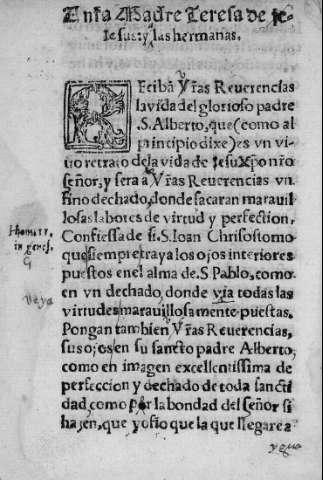 A nr̃a Madre Teresa de je-
Iesus: y las hermanas.
REciba Vr̃as Reuerencias
la vida del glorioso padre
S. Alberto, que (como al
principio dixe) es vn vi
uo retrato de la vida de Jesu xpo nr̃o
señor, y sera a Vr̃as Reuerencias vn
fino dechado, donde sacaran marauil
losas labores de virtud y perfection.
Confiessa de si. S. Ioan Chrisostomo
que siempre traya los ojos interiores
puestos en el alma de. S. Pablo, como
en vn dechado donde via todas las
virtudes marauillosamente puestas.
Pongan tambien Vr̃as Reuerencias,
sus ojos en su sancto padre Alberto,
como en imagen excellentissima de
perfeccion y dechado de toda sancti
dad, como por la bondad del señor si
hazen, que yo fio que la que llegare a
y qua
homil.
in genes.
veya